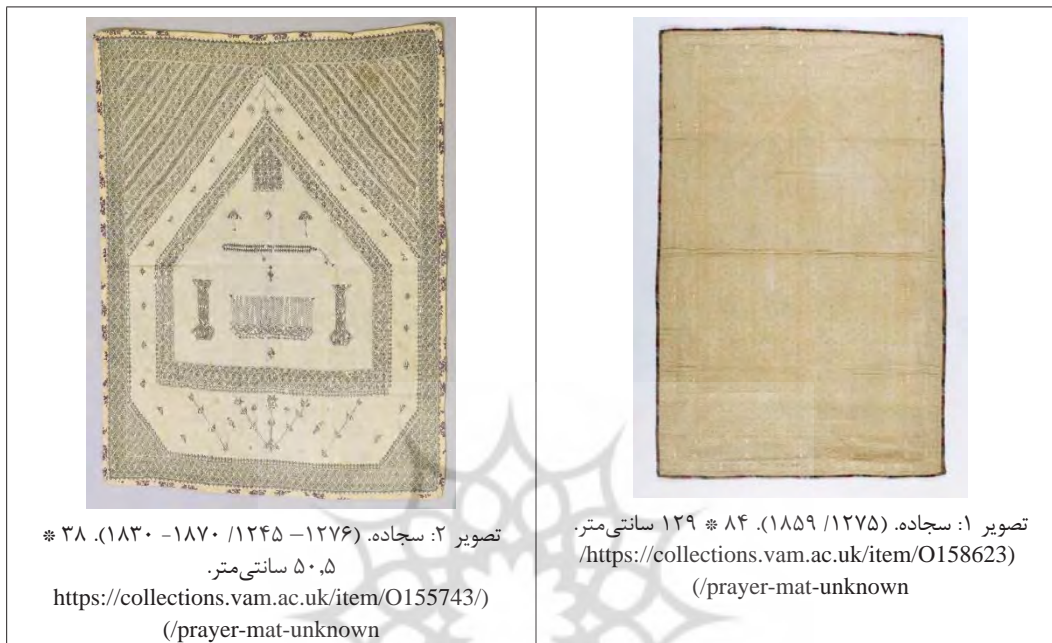 تصویر ۱: سجاده. (۱۲۷۵/ ۱۸۵۹). ۸۴ * ۱۲۹ سانتی‌متر.
/https://collections.vam.ac.uk/item/O158623)
(/prayer-mat-unknown
تصویر ۲: سجاده. (۱۲۷۶– ۱۲۴۵/ ۱۸۷۰- ۱۸۳۰). ۳۸ *
۵۰٫۵ سانتی‌متر.
https://collections.vam.ac.uk/item/O155743/)
(/prayer-mat-unknown